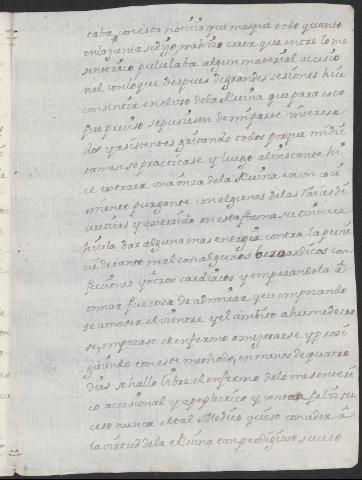 taba, con esta noticia que mas que todo quanto
en la Junta se dijo, me hizo creer que entre lo me
senterico pululaba algun material accesio
nal con lo que despues de grandes sesiones hice
consintir en el uso de la Quina que para esto
fue preciso se pusiesen de mi parte interesa
dos y asistentes gritando todos porque mi dic
tamen se practicase y luego al instante hi
ce extraer una onza de la Quina en un coci
miento purgante con algunas de las raices di
ureticas y extraida en esta forma su tintura
hicela dar alguna mas energia contra la perni
cie de tanto mal con algunos bezoardicos con
fecciones y otros cardiacos y empezandola à
tomar fue cosa de admirar, que empezando
se a mober el vientre y el ambito a humedecer
se, empezase el enfermo a mejorarse y prosi
guiendo con este methodo, en menos de quatro
dias se hallò libre el enfermo de lo mesenteri
co accesional y apoplectico y con tan feliz su
ceso nunca el tal Medico quiso conceder à
la virtud de la Quina tan prodigioso suceso